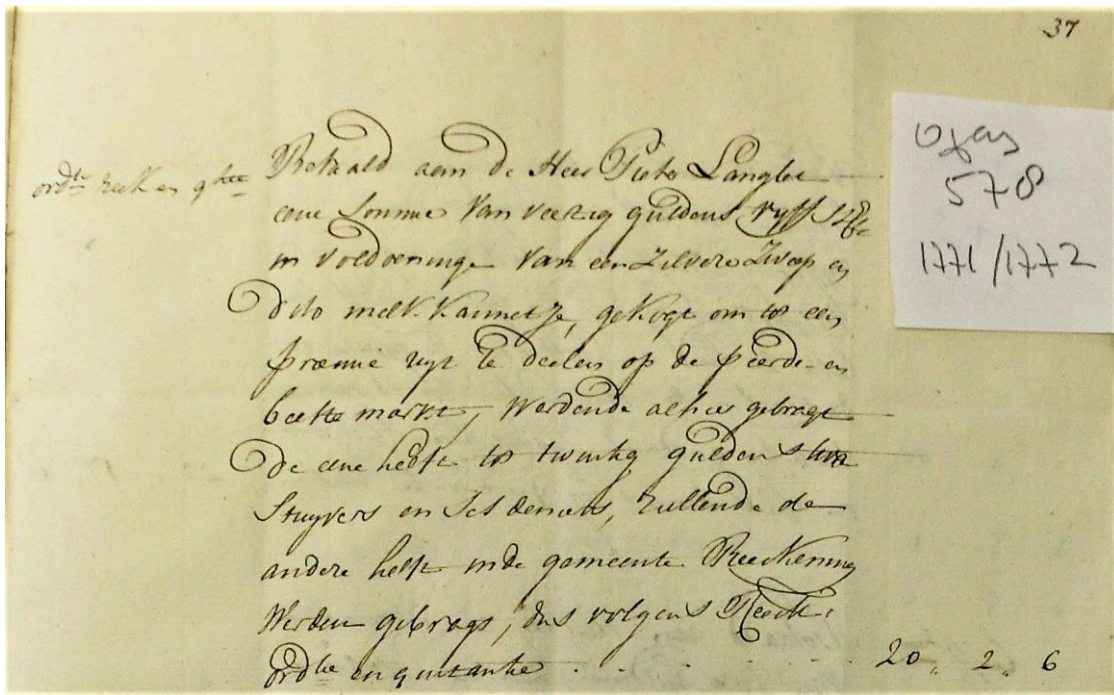 37
Ofen
578
1771/1772
ordtie reek en qtie
Betaald aan de Heer Pieter Langlet
eene Somme van veertig guldens vyff St
in voldoeninge van een Zilvere Zweep en
dito melk kannetje, gekogt om tot een
præmie uyt te deelen op de peerde- en
beestemarkt, werdende alhier gebragt
de eene helft tot twintig guldens twee
Stuyvers en Ses deniers, zullende de
andere helft in de gemeente Reekening
werden gebragt, dus volgens Reek:
ordtie en quitantie . . . . . 20 „ 2 „ 6